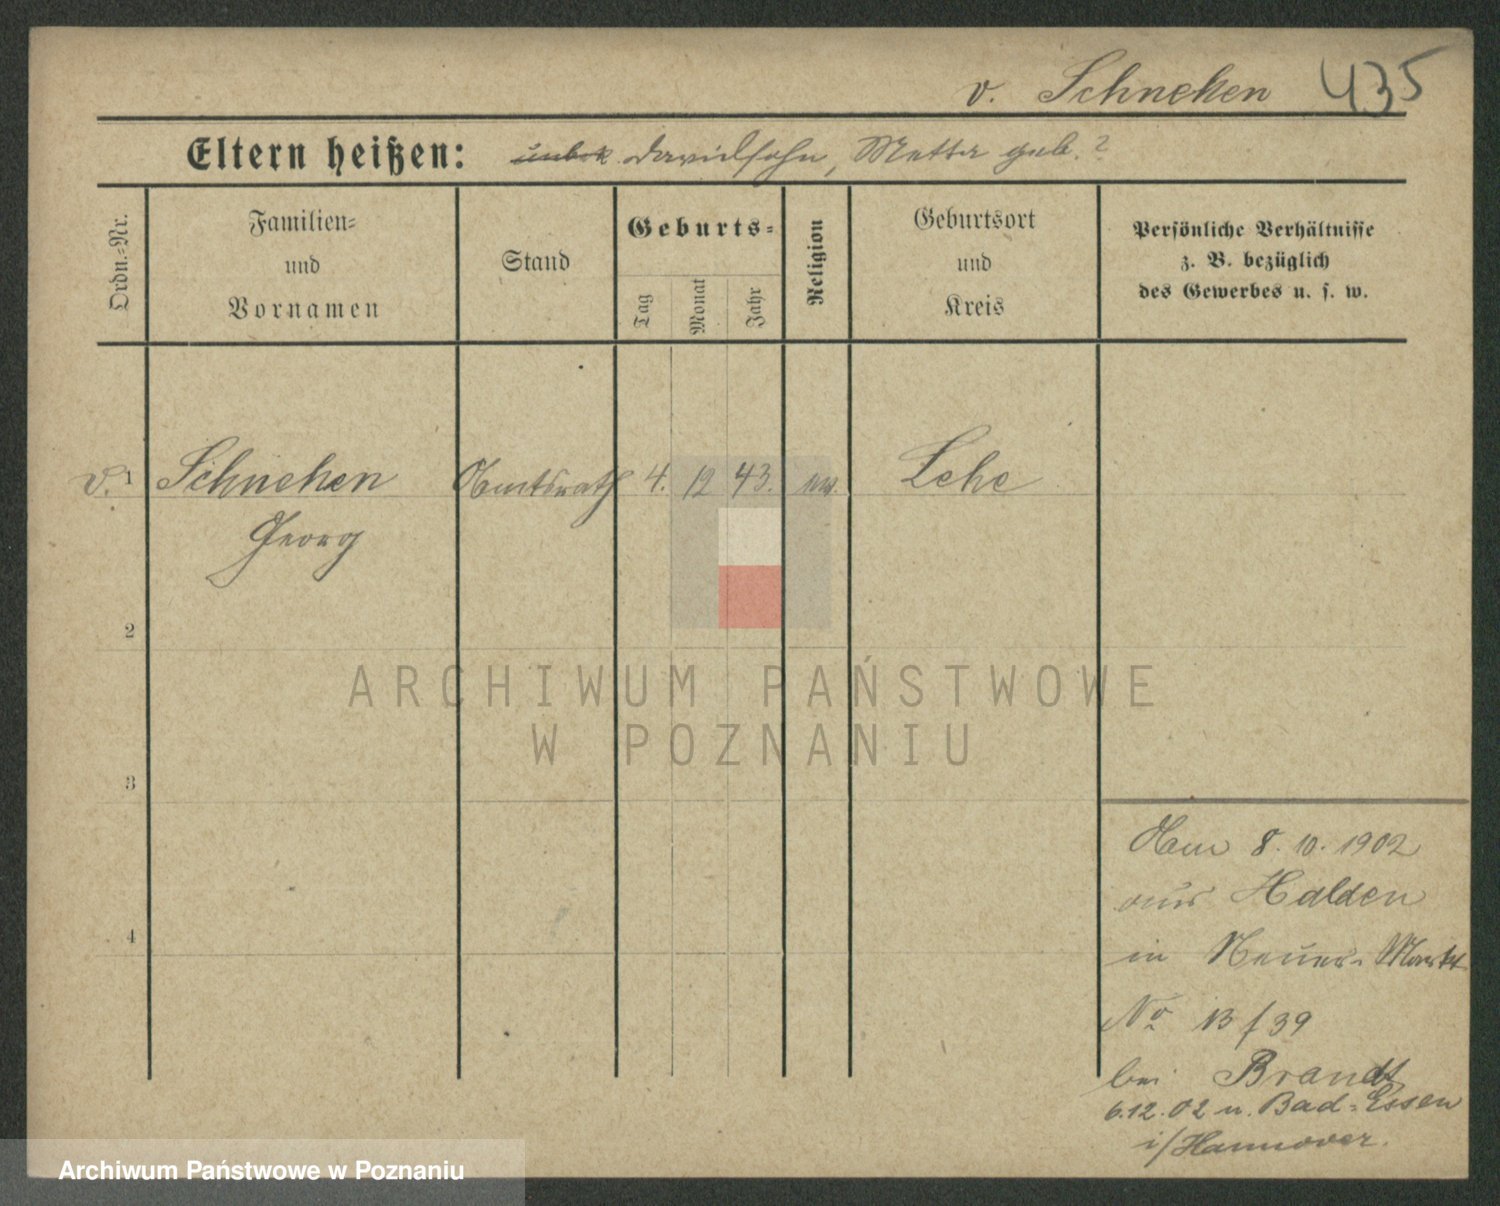 v. Schneken 435
Eltern heißen: unbek. Davidsohn, Metta geb. ?
Ordn.=Nr.
Familien=
und
Vornamen
Stand
Geburts=
Tag
Monat
Jahr
Religion
Geburtsort
und
Kreis
Persönliche Verhältnisse
z. B. bezüglich
des Gewerbes u. s. w.
v. 1 Schneken Amtsrath 4. 12 43. Lehe
Georg
2
ARCHIWUM PAŃSTWOWE
W POZNANIU
3
4
Am 8. 10. 1902
aus Halden
in Neuer Markt
No 13/39
bei Brandt
6.12.02 n. Bad=Essen
i/Hannover.
Archiwum Państwowe w Poznaniu